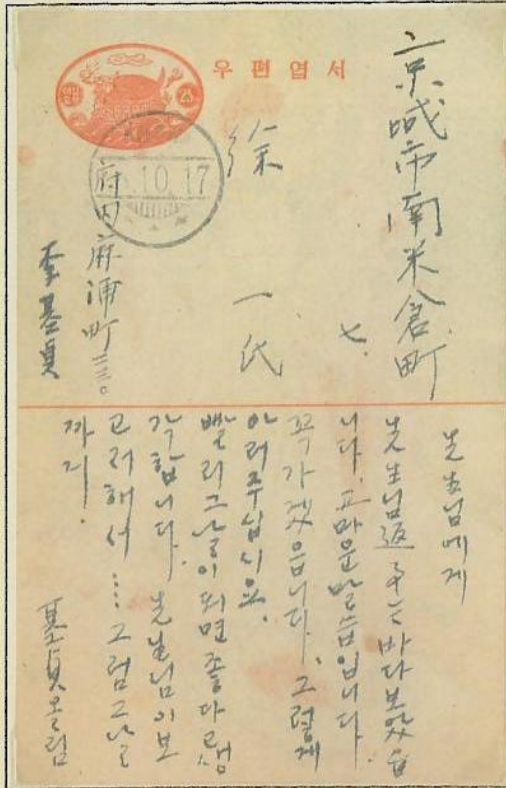 우편엽서
京城市南米倉町
七
徐
一氏
.10.17
府内麻浦町三三〇
李基貞
先生님에게
先生님返주는바다보앗습
니다. 고마운말슴입니다.
꼭가겟읍니다. 그렇게
아러주십시요.
빨리그날이되면좋다고생
각합니다. 先生님이보
고러해서 .... 그럼그날
까지.
基貞올림